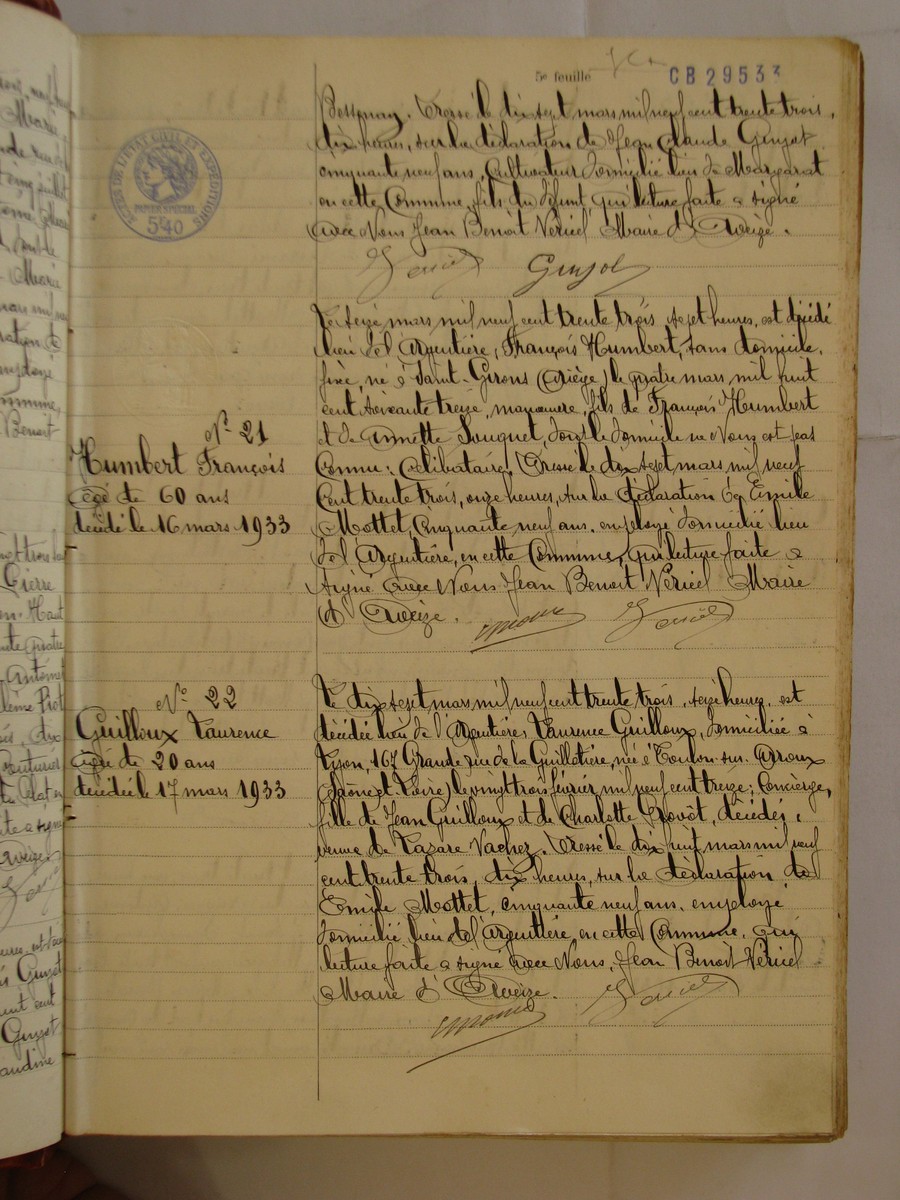 5e feuille
CB 29533
PAPIER SPECIAL
5F40
Bessenay. Dressé le dix sept mars mil neuf cent trente trois,
dix heures, sur la déclaration de Jean Claude Guyot
cinquante neuf ans, Cultivateur domicilié lieu de Margarat
en cette Commune, fils du défunt, qui lecture faite a signé
avec Nous Jean Benoît Vericel Maire d'Aveize.
Vericel Guyot
Le seize mars mil neuf cent trente trois sept heures, est décédé
lieu de l'Argentière, François Humbert, sans domicile,
fixe, né à Saint-Girons (Ariège) le quatre mars mil huit
cent soixante treize, manœuvre, fils de François Humbert
et de Annette Souquet, dont le domicile ne Nous est pas
Connu; célibataire. Dressé le dix sept mars mil neuf
Cent trente trois, onze heures, sur la déclaration de Emile
Mottet, Cinquante neuf ans, employé domicilié lieu
de l'Argentière, en cette Commune, qui lecture faite a
signé avec Nous Jean Benoit Vericel Maire
d'Aveize.
Vericel
No 21
Humbert François
âgé de 60 ans
décédé le 16 mars 1933
Le dix sept mars mil neuf cent trente trois, seize heures, est
décédée lieu de l'Argentière Laurence Guilloux, domiciliée à
Lyon, 167 Grande rue de la Guillotière, née à Toulon-sur-Arroux
(Saône et Loire) le vingt trois février mil neuf cent treize; Concierge,
fille de Jean Guilloux et de Charlotte Provôt, décédés;
veuve de Lazare Vachez. Dressé le dix huit mars mil neuf
cent trente trois, dix heures, sur la déclaration de
Emile Mottet, cinquante neuf ans, employé
domicilié lieu de l'Argentière, en cette Commune, qui
lecture faite a signé avec Nous, Jean Benoît Vericel
Maire d'Aveize.
Vericel
No 22
Guilloux Laurence
âgée de 20 ans
décédée le 17 mars 1933